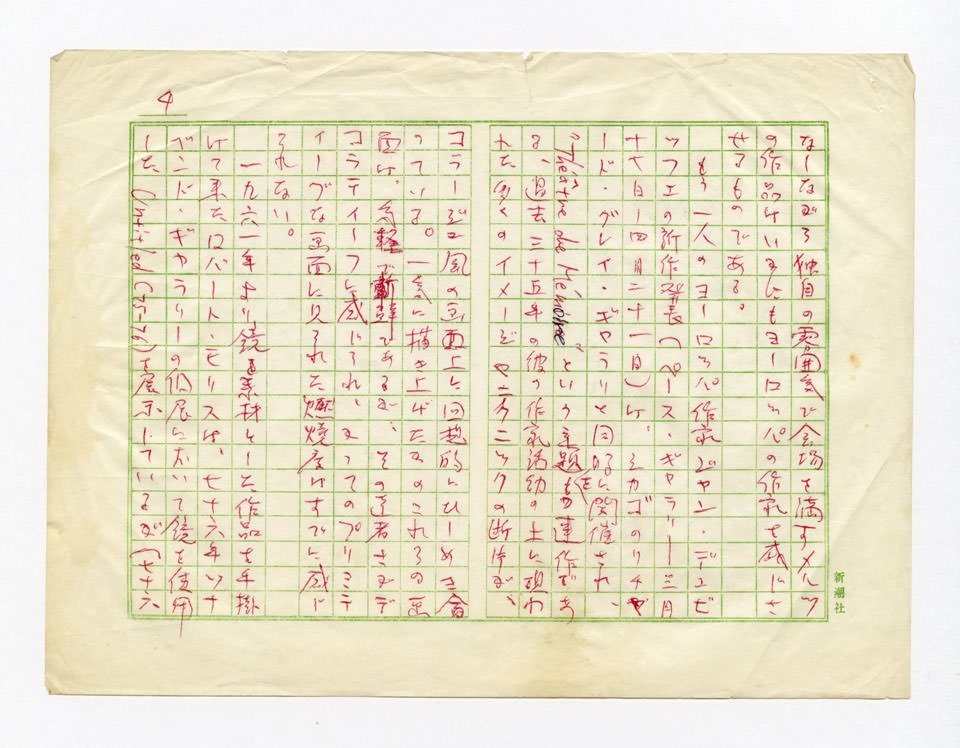 4
なしながら独自の雰囲気で会場を満すメルツ
の作品はいまにもヨーロッパの作家を感じさ
せるものである。
もう一人のヨーロッパ作家ジャン・デュビ
ッフエの新作発表(ペース・ギャラリー三月
十七日ー四月二十一日)は、シカゴのリチャ
ード・グレイ・ギャラリと同時に開催され、
"Théâtre de Mémoire"という主題を連作であ
る、過去三十五年の彼の作家活動の上に現わ
れた多くのイメージやテクニックの断片が、
コラージュ風の画面上に回想的にひしめき合
っている。一気に描き上げたかのこれらの画
面は、
である が、その達者さがデ
コラティーフに感じられ、かつてのプリミテ
ィーブな画面に見られた燃焼度はすでに感じ
られない。
一九六一年より鏡を素材とした作品を手掛
けて来たロバート・モリスは、七十六年ソナ
ベンド・ギャラリーの個展において鏡を使用
した Untitled (75-76)を展示しているが(七十六
新潮社